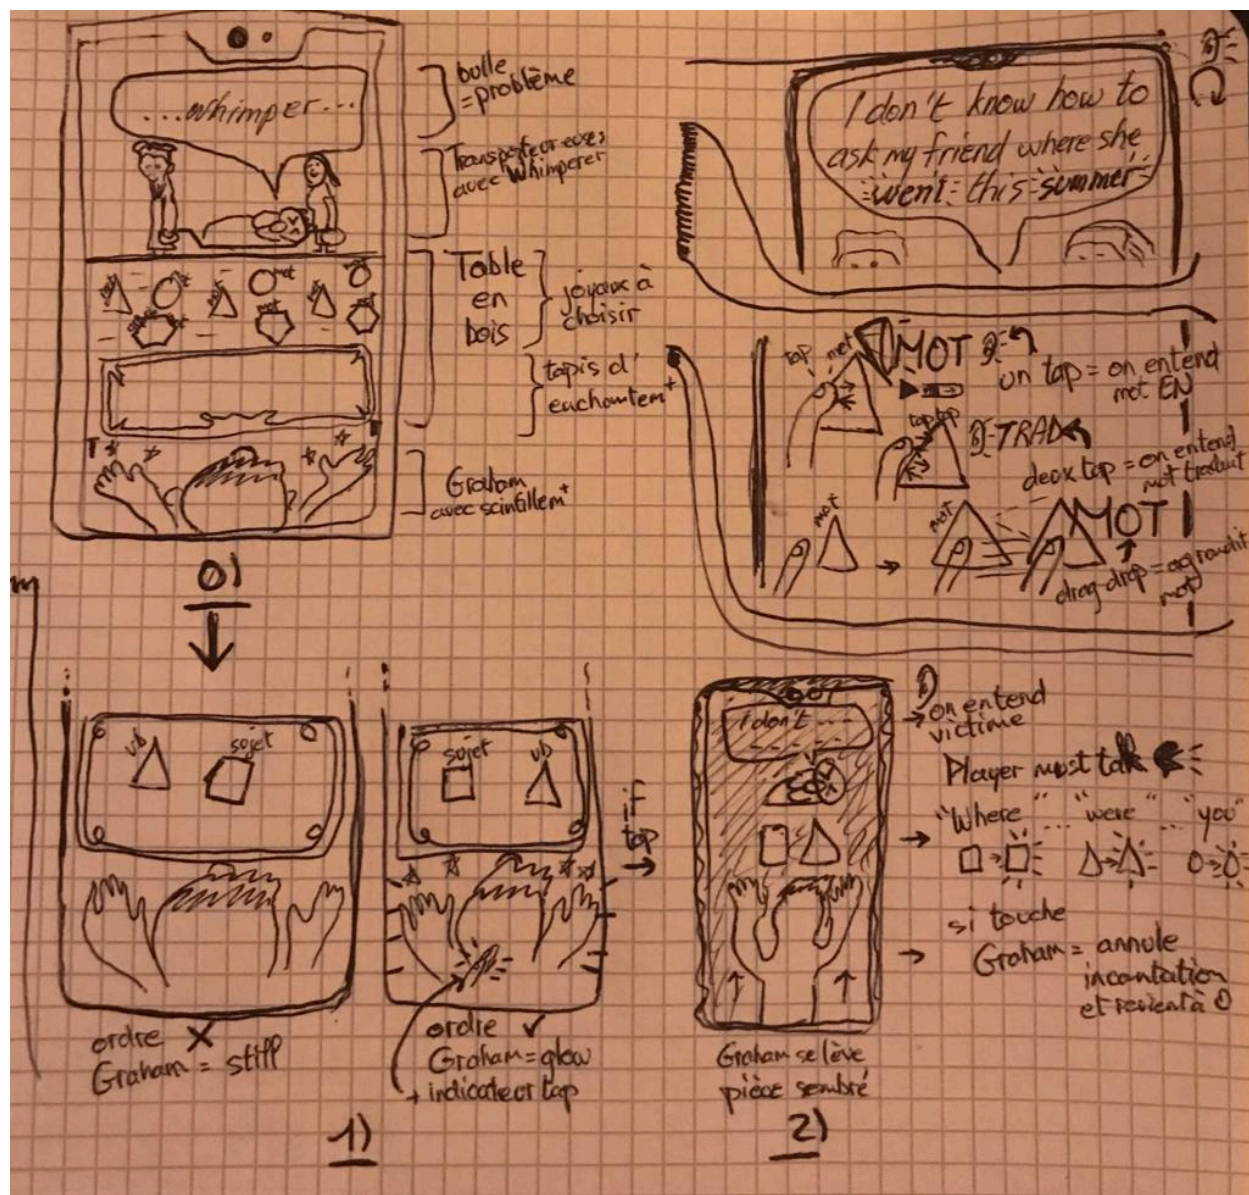 ...whimper...
bulle
=problème
Transporteur·euses
avec Whimperer
Table
en
bois
joyaux à
choisir
tapis d'
enchantem^t
Graham
avec scintillem^t
0)
I don't know how to
ask my friend where she
went this summer
tap
mot
MOT
un tap = on entend
mot EN
tap tap
TRAD
deux tap = on entend
mot traduit
mot
mot
MOT
drag-drop = agrandit
mot
vb
sujet
ordre X
Graham = still
sujet
vb
ordre ✓
Graham = glow
+ indicateur tap
1)
tap
I don't ...
on entend
victime
Player must talk
"Where" ... "were" ... "you"
si touche
Graham = annule
incantation
et revient à 0
Graham se lève
pièce sombré
2)